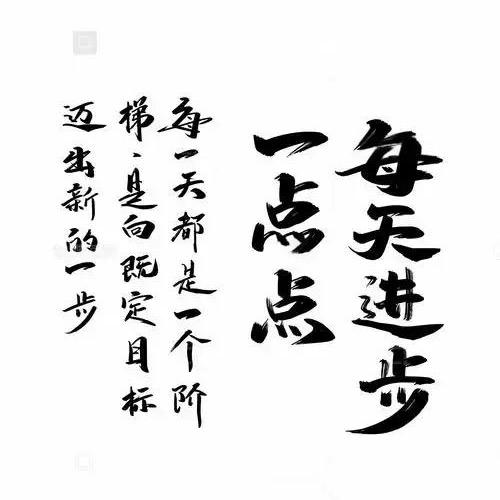 每天进步
一点点
每一天都是一个阶
梯、是向既定目标
迈出新的一步